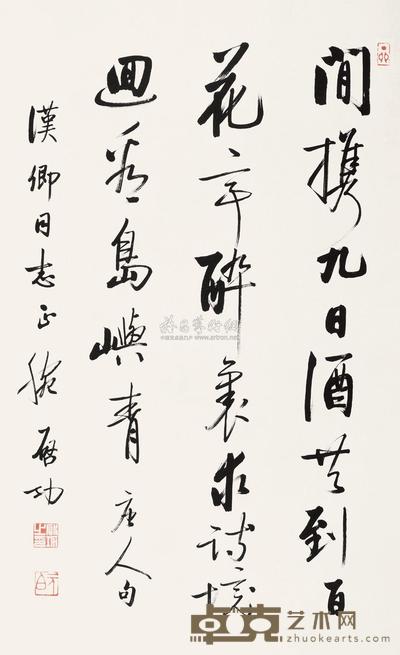 閒携九日酒共到百
花亭醉裏求詩境
迴看島嶼青 唐人句
漢卿同志正腕 啓功
雅昌藝術網
卓克艺术网
zhuokearts.com